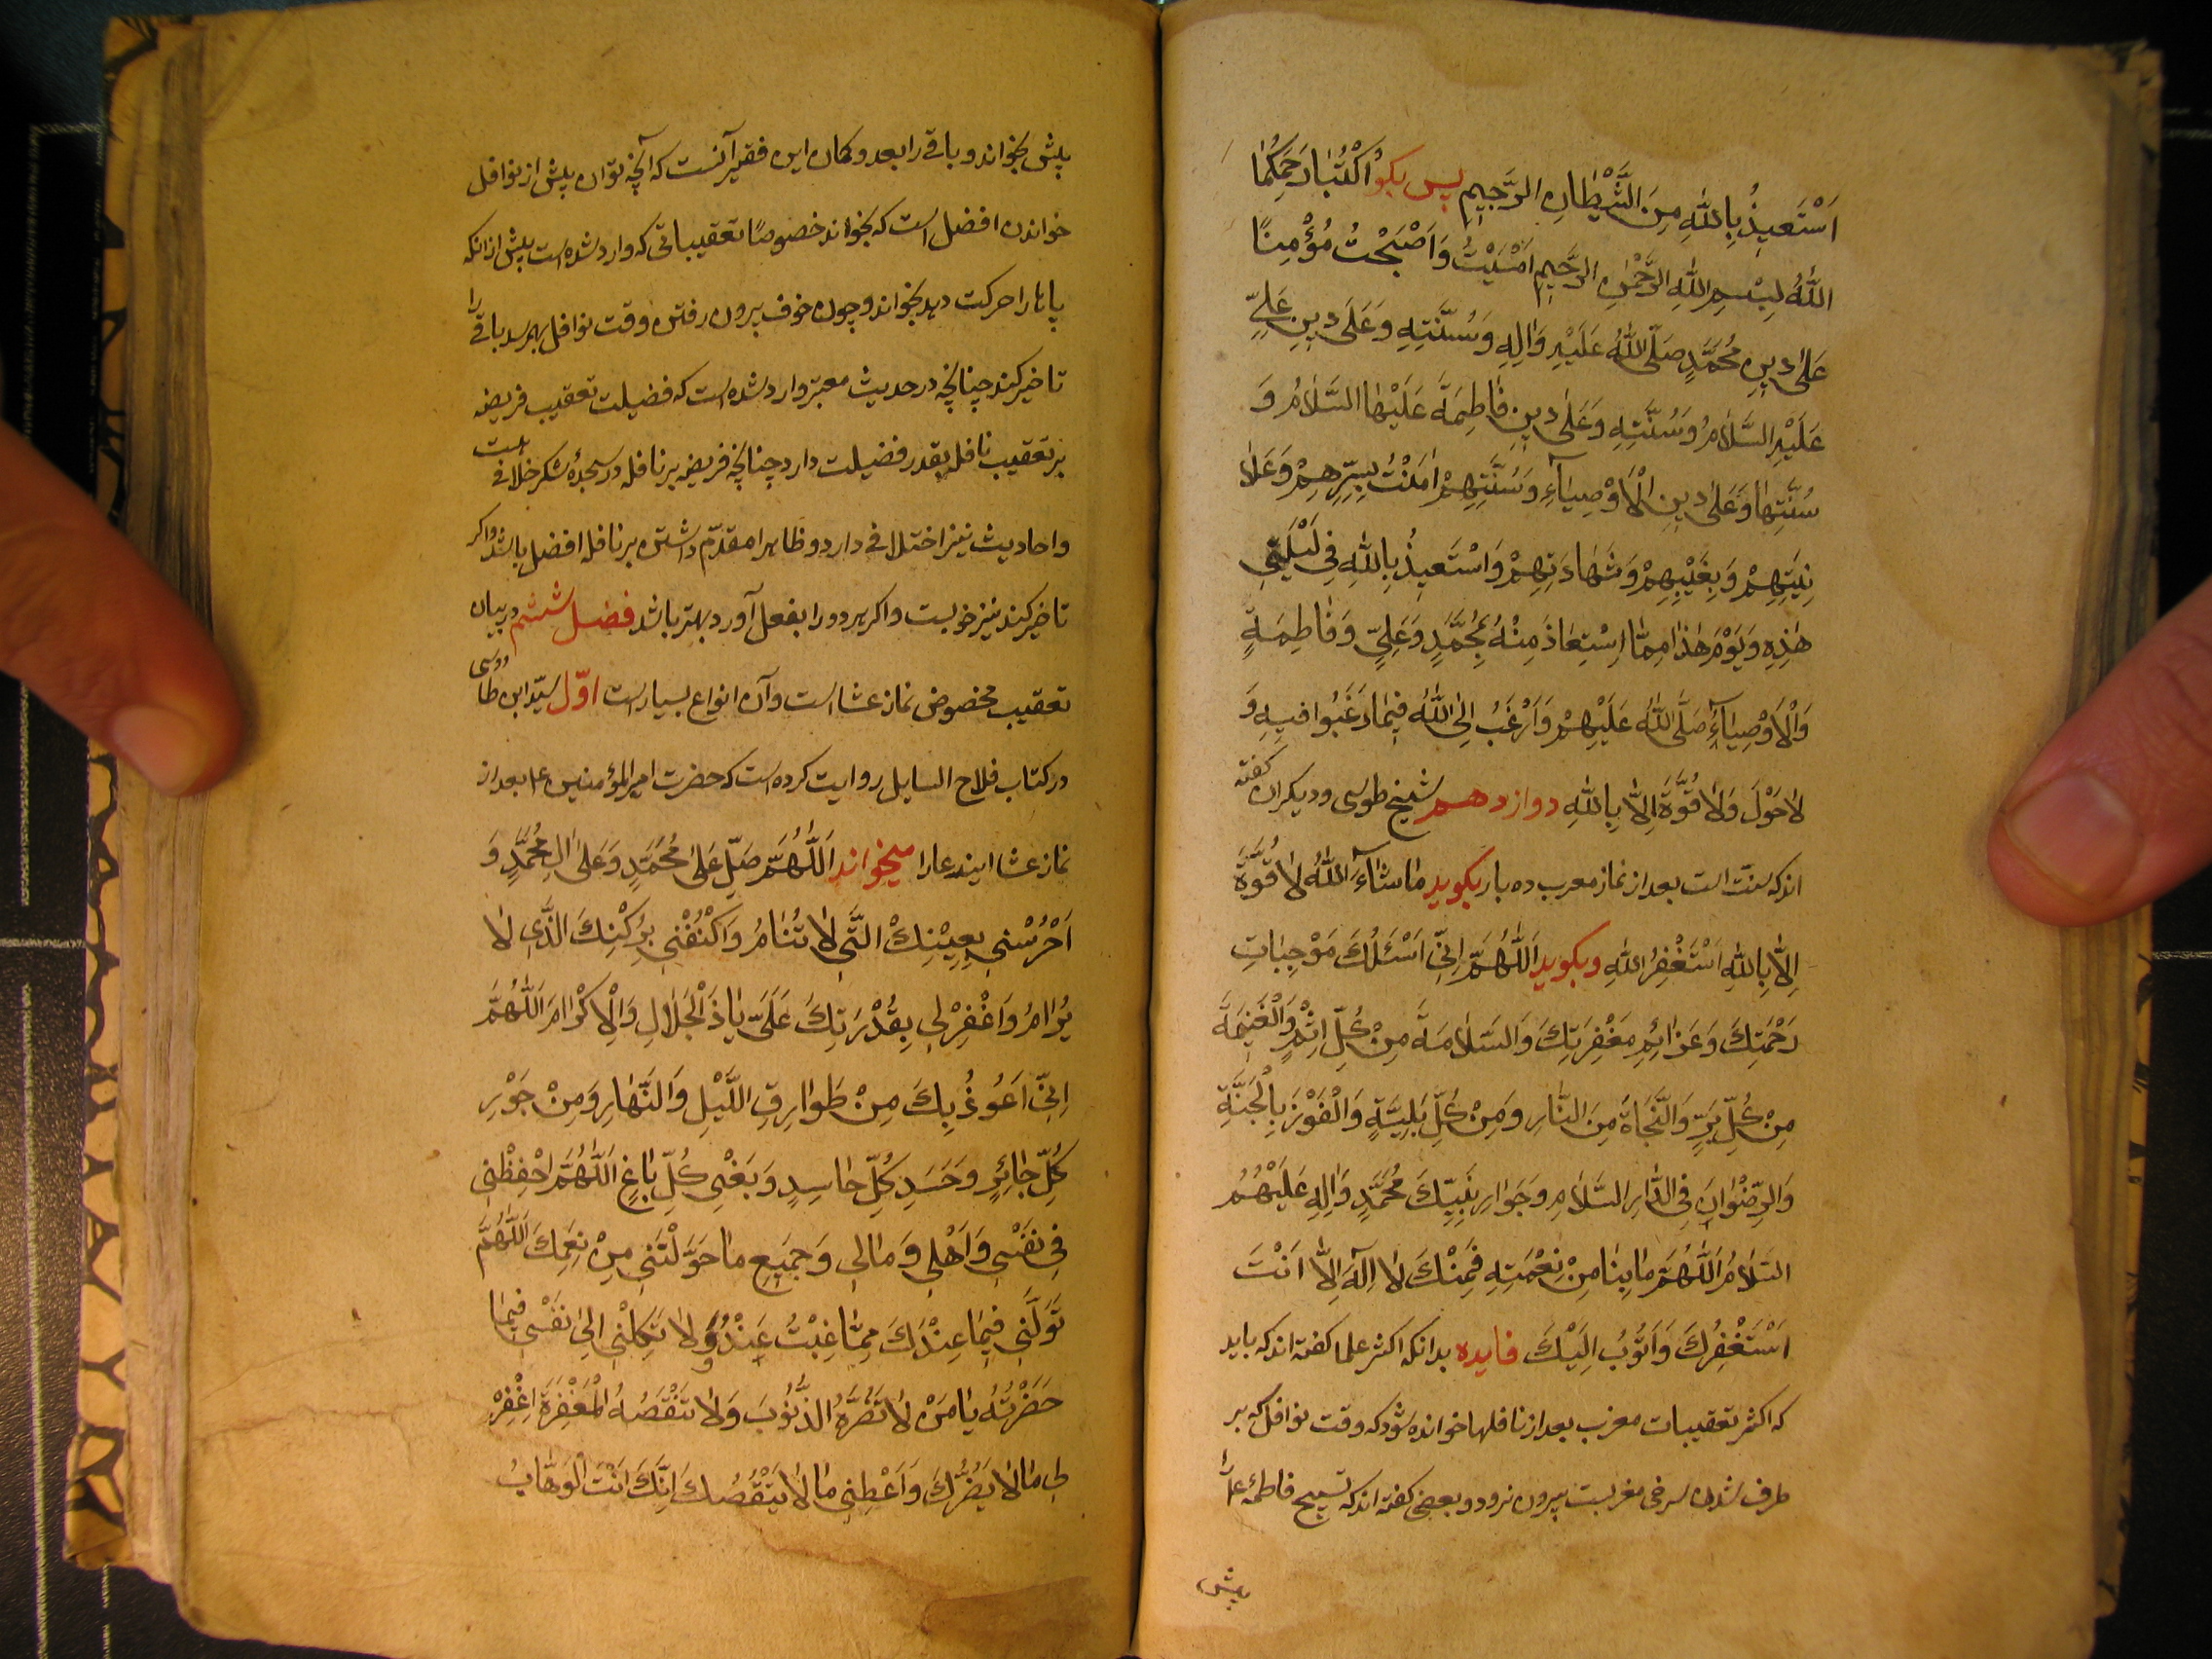 اَسْتَعیذُ بِاللّٰهِ مِنَ الشَّیْطانِ الرَّجیمِ پس بکو اُکْتُبا رَحِمَکُمَا
اللّٰهُ بِسْمِ اللّٰهِ الرَّحْمٰنِ الرَّحیمِ اَمْسَیْتُ وَ اَصْبَحْتُ مُؤْمِنًا
عَلیٰ دینِ مُحَمَّدٍ صَلَّی اللّٰهُ عَلَیْهِ وَ اٰلِهِ وَ سُنَّتِهِ وَ عَلیٰ دینِ عَلِیٍّ
عَلَیْهِ السَّلامُ وَ سُنَّتِهِ وَ عَلیٰ دینِ فاطِمَةَ عَلَیْهَا السَّلامُ وَ
سُنَّتِها وَ عَلیٰ دینِ الْاَوْصِیآءِ وَ سُنَّتِهِمْ اٰمَنْتُ بِسِرِّهِمْ وَ عَلا
نِیَتِهِمْ وَ بِغَیْبِهِمْ وَ شَهادَتِهِمْ وَ اَسْتَعیذُ بِاللّٰهِ فی لَیْلَتی
هٰذِهِ وَ یَوْمِ هٰذا مِمَّا اسْتَعاذَ مِنْهُ مُحَمَّدٍ وَ عَلِیٍّ وَ فاطِمَةٍ
وَ الْاَوْصِیآءِ صَلَّی اللّٰهُ عَلَیْهِمْ وَ اَرْغَبُ اِلَی اللّٰهُ فیما رَغِبُوا فیهِ وَ
لا حَوْلَ وَ لا قُوَّةَ اِلّا بِاللّٰهِ دوازدهم شیخ طوسی و دیکران کفته
اند که سنّت است بعد از نماز مغرب ده بار بکوید ما شآءَ اللّٰهُ لا قُوَّةَ
اِلّا بِاللّٰهِ اَسْتَغْفِرُ اللّٰهَ و بکوید اَللّٰهُمَّ اِنّی اَسْئَلُکَ مُوْجِباتِ
رَحْمَتِکَ وَ عَزائِمِ مَغْفِرَتِکَ وَ السَّلامَةَ مِنْ کُلِّ اِثْمٍ وَ الْغَنیمَةَ
مِنْ کُلِّ بِرٍّ وَ النَّجاةَ مِنَ النّارِ وَ مِنْ کُلِّ بَلِیَّةٍ وَ الْفَوْزَ بِالْجَنَّةِ
وَ الرِّضْوانِ فِی الدّارِ السَّلامِ وَ جَوارِ نَبِیِّکَ مُحَمَّدٍ وَ اٰلِهِ عَلَیْهُمُ
السَّلامُ اَللّٰهُمَّ ما بِنا مِنْ نِعْمَتِهِ فَمِنْکَ لا اِلٰهَ اِلّا اَنْتَ
اَسْتَغْفِرُکَ وَ اَتُوبُ اِلَیْکَ فایده بدانکه اکثر علما کفته اند که باید
که اکثر تعقیبات مغرب بعد از نافلها خوانده شود که وقت نوافل که بر
طرف شدن سرخی مغربست بیرون نرود و بعضی کفته اند که تسبیح فاطمه ع را
پیش
پیش بخواند و باقی را بعد و کمان این فقیر آنست که آنچه توان پیش از نوافل
خواندن افضل است که بخواند خصوصًا تعقیباتی که وارد شده است پیش از انکه
پاها را حرکت دهد بخواند و چون خوف بیرون رفتن وقت نوافل بهم رسد باقی را
تاخیر کند چنانچه در حدیث معتبر وارد شده است که فضیلت تعقیب فریضه
بر تعقیب نافله بقدر فضیلت دارد چنانچه فریضه بر نافله در سجدهٔ شکر خلافی است
و احادیث نیز اختلافی دارد و ظاهرا مقدّم داشتن بر نافله افضل باشد و اکر
تاخیر کند نیز خوبست و اکر هر دو را بفعل آورد بهتر باشد فصل ششم در بیان
تعقیب مخصوص نماز عشا است و آن انواع بسیار است اوّل سیّد ابن طاووسی
در کتاب فلاح السایل روایت کرده است که حضرت امیر المؤمنین ع بعد از
نماز عشا ایندعا را میخواند اَللّٰهُمَّ صَلِّ عَلیٰ مُحَمَّدٍ وَ عَلیٰ اٰلِ مُحَمَّدٍ وَ
اَحْرُسْنی بِعِیْنِکَ الَّتی لا تُنامُ وَ اکْنُفْنی بِرُکْنِکَ الَّذی لا
یُرامُ وَ اغْفِرْ لی بِقُدْرَتِکَ عَلَیَّ یا ذَا الْجَلالِ وَ الْاِکْرامِ اَللّٰهُمَّ
اِنّی اَعُوذُ بِکَ مِنْ طَوارِقِ اللَّیْلِ وَ النَّهارِ وَ مِنْ جَوْرِ
کُلِّ جائِرٍ وَ حَسَدِ کُلِّ حاسِدٍ وَ بَغْیِ کُلِّ باغٍ اَللّٰهُمَّ احْفِظْنی
فی نَفْسی وَ اَهْلی وَ مالی وَ جَمیعِ ما خَوَّلْتَنی مِنْ نِعَمِکَ اَللّٰهُمَّ
تَوَلَّنی فیما عِنْدَکَ مِمّا غِبْتُ عَنْهُ وَ لا تَکِلْنی اِلیٰ نَفْسی فیما
حَضَرْتُهُ یا مَنْ لا تَضُرُّهُ الذُّنُوبَ وَ لا تَنْقُصُهُ الْمَغْفِرَةَ اِغْفِرْ
لی ما لا یَضُرُّکَ وَ اَعْطِنی ما لا یَنْقُصُکَ اِنَّکَ اَنْتَ الْوَهّابُ